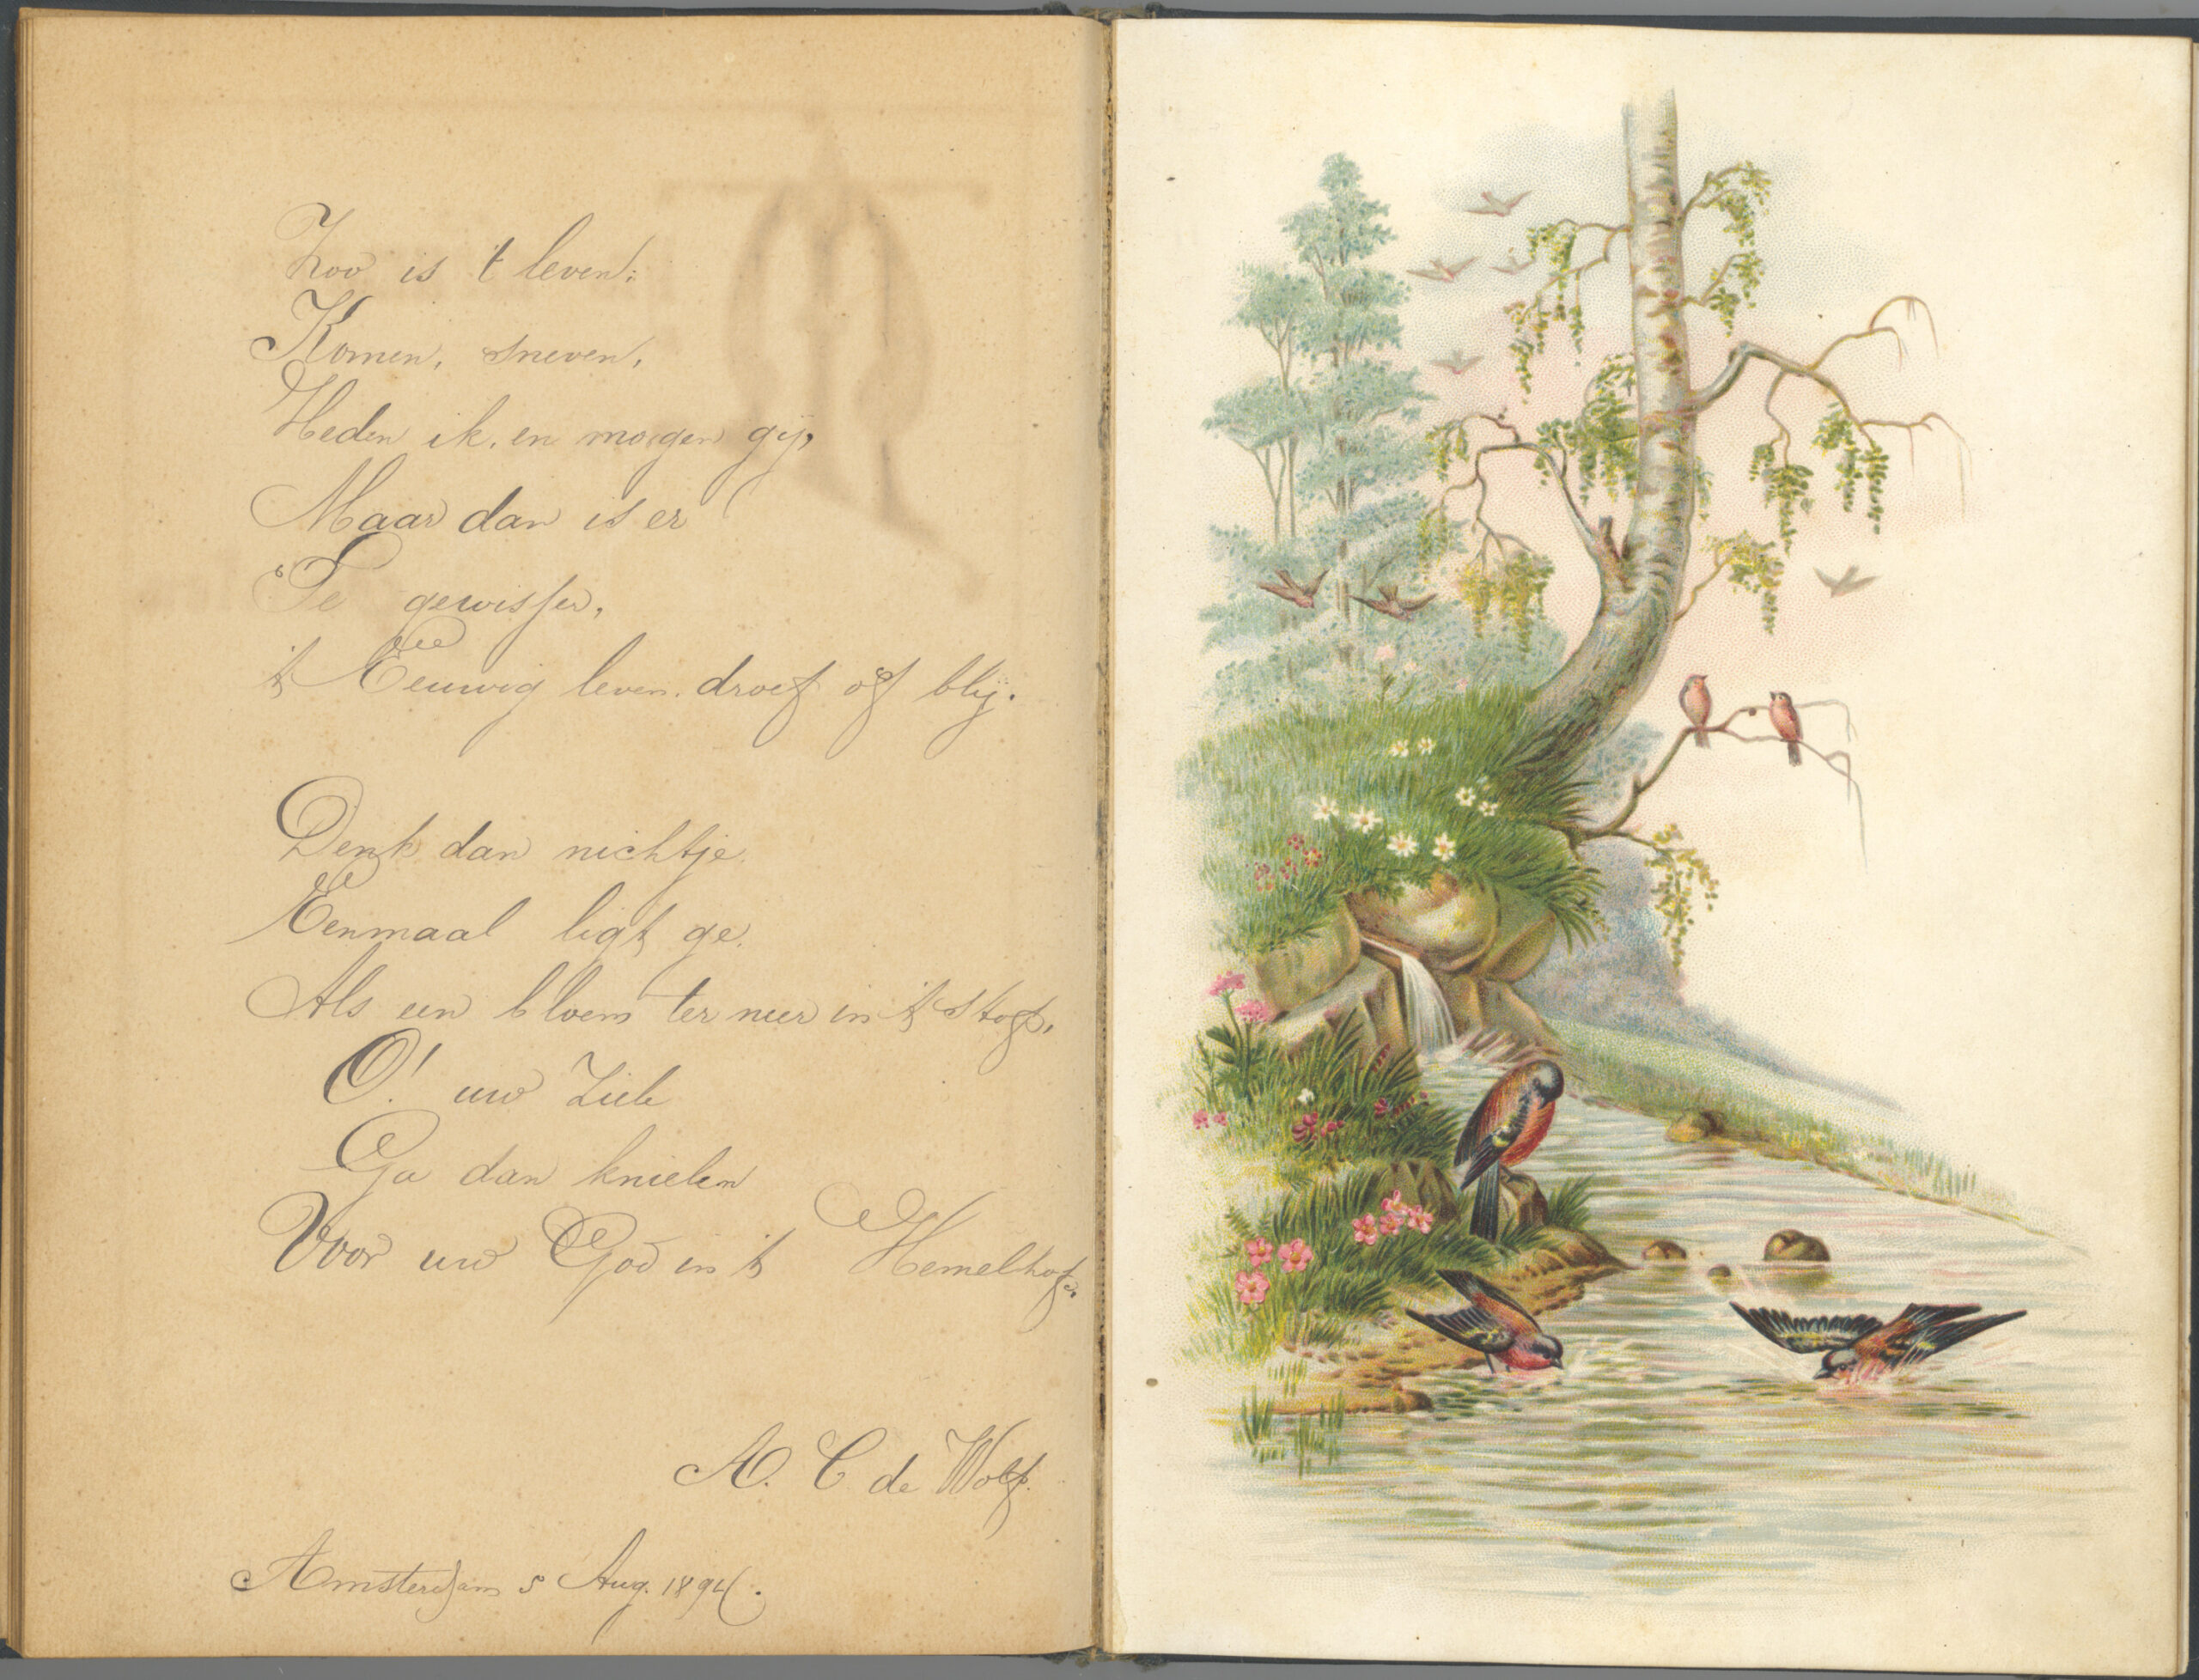 Zoo is 't leven:
Komen, sneven,
Heden ik, en morgen gij,
Maar dan is er
Te gewisser,
't Eeuwig leven droef of blij.
Denk dan nichtje
Eenmaal ligt ge
Als een bloem ter neer in 't stof,
O! uw Ziele
Ga dan knielen
Voor uw God in 't Hemelhof.
A. C de Wolf.
Amsterdam 5 Aug. 1894.